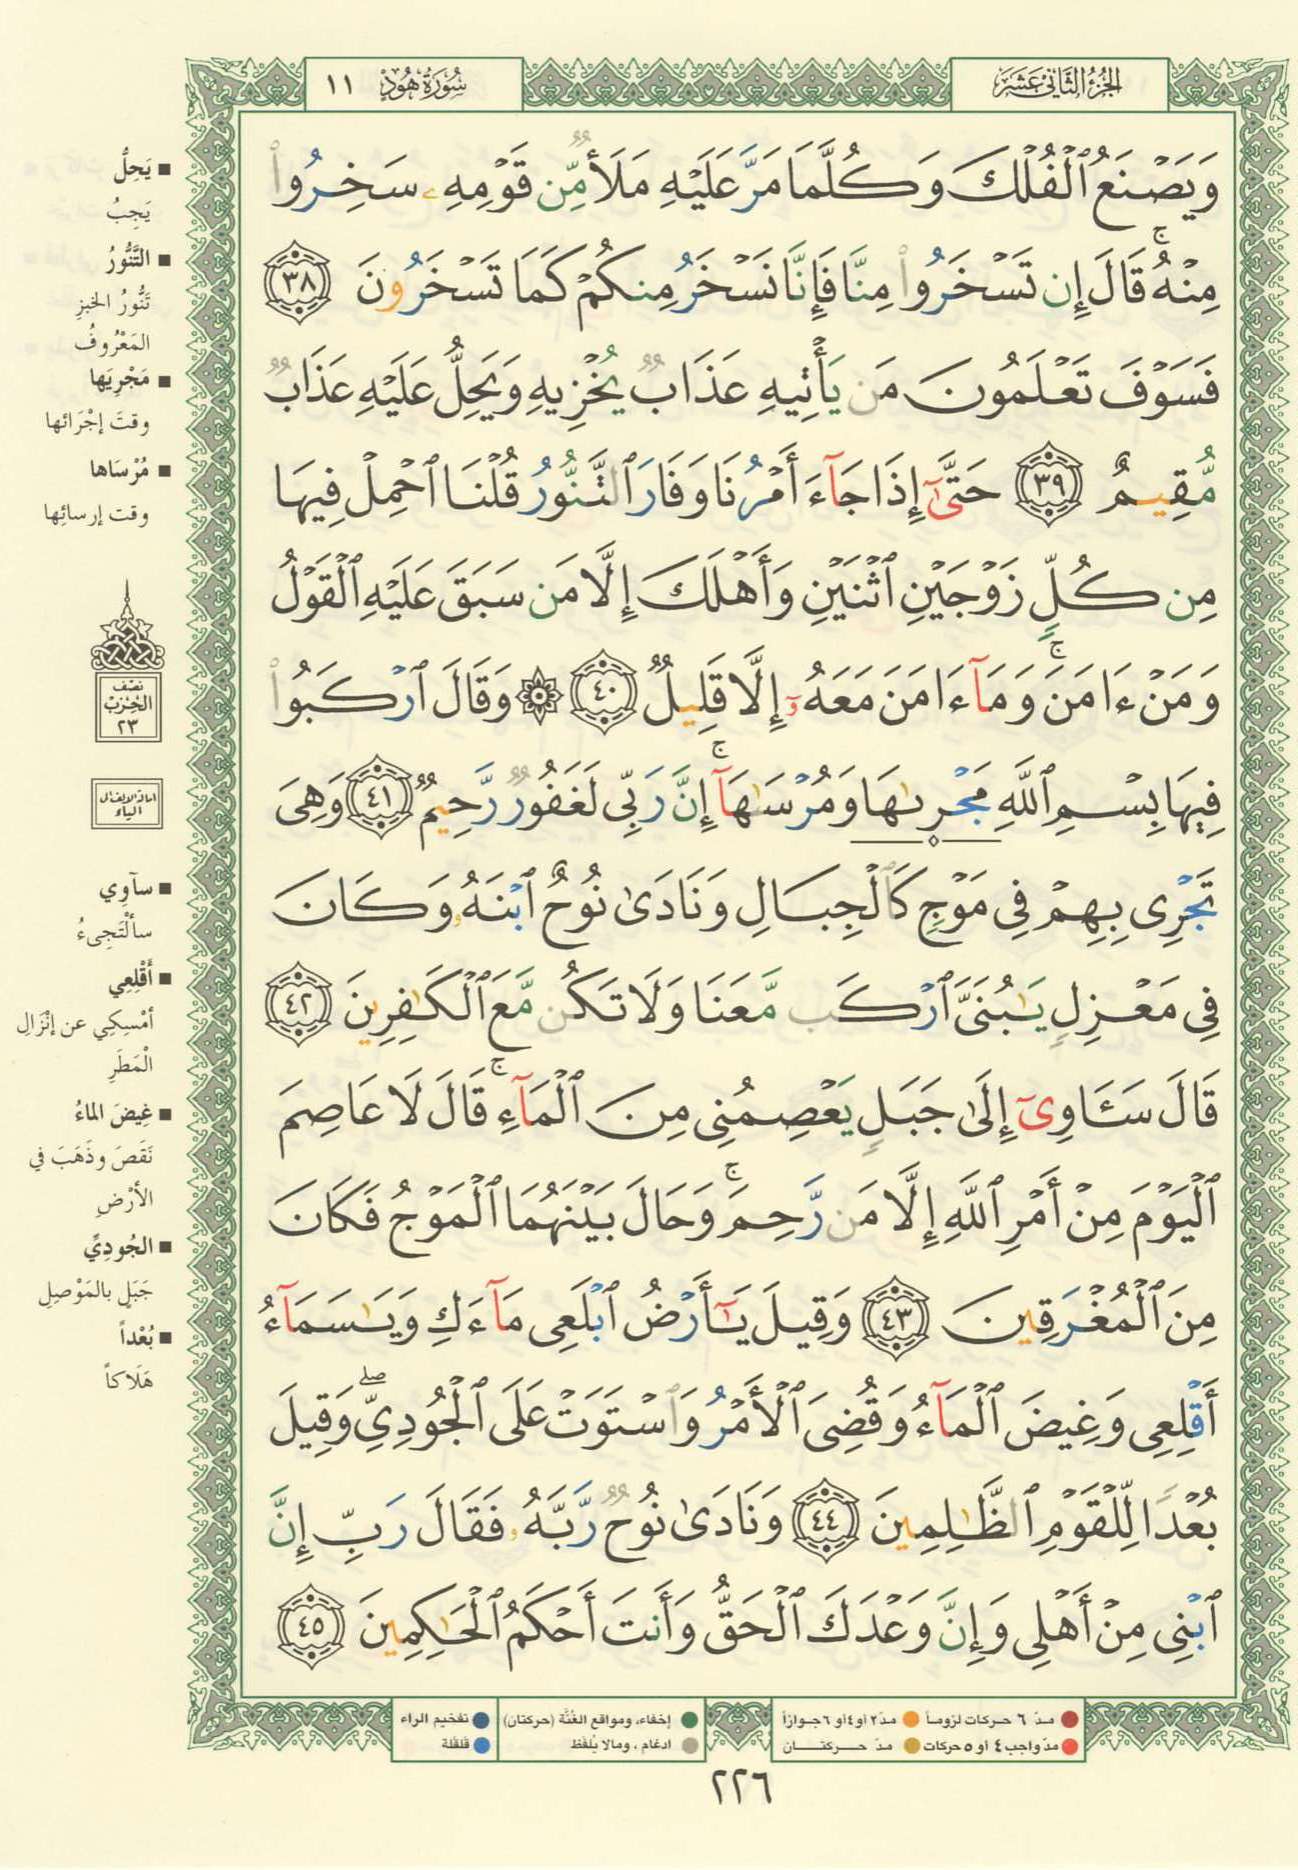 الجزء الثاني عشر
سورة هود ١١
وَيَصْنَعُ ٱلْفُلْكَ وَكُلَّمَا مَرَّ عَلَيْهِ مَلَأٌ مِّن قَوْمِهِۦ سَخِرُوا۟
مِنْهُ ۚ قَالَ إِن تَسْخَرُوا۟ مِنَّا فَإِنَّا نَسْخَرُ مِنكُمْ كَمَا تَسْخَرُونَ ٣٨
فَسَوْفَ تَعْلَمُونَ مَن يَأْتِيهِ عَذَابٌ يُخْزِيهِ وَيَحِلُّ عَلَيْهِ عَذَابٌ
مُّقِيمٌ ٣٩ حَتَّىٰٓ إِذَا جَآءَ أَمْرُنَا وَفَارَ ٱلتَّنُّورُ قُلْنَا ٱحْمِلْ فِيهَا
مِن كُلٍّ زَوْجَيْنِ ٱثْنَيْنِ وَأَهْلَكَ إِلَّا مَن سَبَقَ عَلَيْهِ ٱلْقَوْلُ
وَمَنْ ءَامَنَ ۚ وَمَآ ءَامَنَ مَعَهُۥٓ إِلَّا قَلِيلٌ ٤٠ ۞ وَقَالَ ٱرْكَبُوا۟
فِيهَا بِسْمِ ٱللَّهِ مَجْر۪ىٰهَا وَمُرْسَىٰهَآ ۚ إِنَّ رَبِّى لَغَفُورٌ رَّحِيمٌ ٤١ وَهِىَ
تَجْرِى بِهِمْ فِى مَوْجٍ كَٱلْجِبَالِ وَنَادَىٰ نُوحٌ ٱبْنَهُۥ وَكَانَ
فِى مَعْزِلٍ يَـٰبُنَىَّ ٱرْكَب مَّعَنَا وَلَا تَكُن مَّعَ ٱلْكَـٰفِرِينَ ٤٢
قَالَ سَـَٔاوِىٓ إِلَىٰ جَبَلٍ يَعْصِمُنِى مِنَ ٱلْمَآءِ ۚ قَالَ لَا عَاصِمَ
ٱلْيَوْمَ مِنْ أَمْرِ ٱللَّهِ إِلَّا مَن رَّحِمَ ۚ وَحَالَ بَيْنَهُمَا ٱلْمَوْجُ فَكَانَ
مِنَ ٱلْمُغْرَقِينَ ٤٣ وَقِيلَ يَـٰٓأَرْضُ ٱبْلَعِى مَآءَكِ وَيَـٰسَمَآءُ
أَقْلِعِى وَغِيضَ ٱلْمَآءُ وَقُضِىَ ٱلْأَمْرُ وَٱسْتَوَتْ عَلَى ٱلْجُودِىِّ ۖ وَقِيلَ
بُعْدًا لِّلْقَوْمِ ٱلظَّـٰلِمِينَ ٤٤ وَنَادَىٰ نُوحٌ رَّبَّهُۥ فَقَالَ رَبِّ إِنَّ
ٱبْنِى مِنْ أَهْلِى وَإِنَّ وَعْدَكَ ٱلْحَقُّ وَأَنتَ أَحْكَمُ ٱلْحَـٰكِمِينَ ٤٥
■ يَحِلُّ
يَجِبُ
■ التَّنُّورُ
تَنُّورُ الخبزِ
المَعْرُوفُ
■ مَجْرِيها
وقتَ إجْرَائها
■ مُرْسَاها
وقت إرسائِها
نصف
الحزب
٢٣
إمالة الألف إلى
الياء
■ سآوِي
سألْتَجِىءُ
■ أَقْلِعِي
أمْسِكِي عن إنْزَالِ
الْمَطَرِ
■ غِيضَ الماءُ
نَقَصَ وذَهَبَ في
الأرْضِ
■ الجُودِيِّ
جَبَلٍ بالمَوْصِلِ
■ بُعْداً
هَلَاكاً
مدّ ٦ حركات لزوماً
مدّ ٢ أو ٤ أو ٦ جوازاً
مدّ واجب ٤ أو ٥ حركات
مدّ حركتان
إخفاء، ومواقع الغُنَّة (حركتان)
ادغام ، ومالا يُلفَظ
تفخيم الراء
قلقلة
٢٢٦